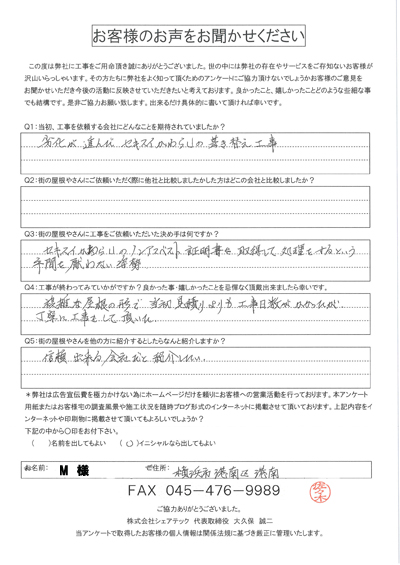 お客様のお声をお聞かせください
この度は弊社に工事をご用命頂き誠にありがとうございました。世の中には弊社の存在やサービスをご存知ないお客様が
沢山いらっしゃいます。その方たちに弊社をよく知って頂くためのアンケートにご協力頂けないでしょうかお客様のご意見を
お聞かせいただき今後の活動に反映させていただきたいと考えております。良かったこと、嬉しかったことどのような些細な事
でも結構です。是非ご協力お願い致します。出来るだけ具体的に書いて頂ければ幸いです。
Q1:当初、工事を依頼する会社にどんなことを期待されていましたか?
劣化が進んだセキスイかわらUの葺き替え工事
Q2:街の屋根やさんにご依頼いただく際に他社と比較しましたかした方はどこの会社と比較しましたか?
Q3:街の屋根やさんに工事をご依頼いただいた決め手は何ですか?
セキスイかわらUのノンアスベスト証明書を取得して処理をするという
手間を厭わない姿勢
Q4:工事が終わってみていかがですか?良かった事・嬉しかったことを忌憚なく頂戴出来ましたら幸いです。
複雑な屋根の形で当初見積りよりも工事日数がかかったが
丁寧に工事をして頂いた
Q5:街の屋根やさんを他の方に紹介するとしたらなんと紹介しますか?
信頼出来る会社だと紹介したい。
*弊社は広告宣伝費を極力かけない為にホームページだけを頼りにお客様への営業活動を行っております。本アンケート
用紙またはお客様宅の調査風景や施工状況を随時ブログ形式のインターネットに掲載させて頂いております。上記内容をイ
ンターネットや印刷物に掲載させて頂いてもよろしいでしょうか?
下記の中から〇印をお付下さい。
( )名前を出してもよい (○)イニシャルなら出してもよい
お名前: M 様 ご住所: 横浜市港南区港南
FAX 045-476-9989
佐々木
ご協力ありがとうございました。
株式会社シェアテック 代表取締役 大久保 誠二
当アンケートで取得したお客様の個人情報は関係法規に基づき厳正に管理いたします。